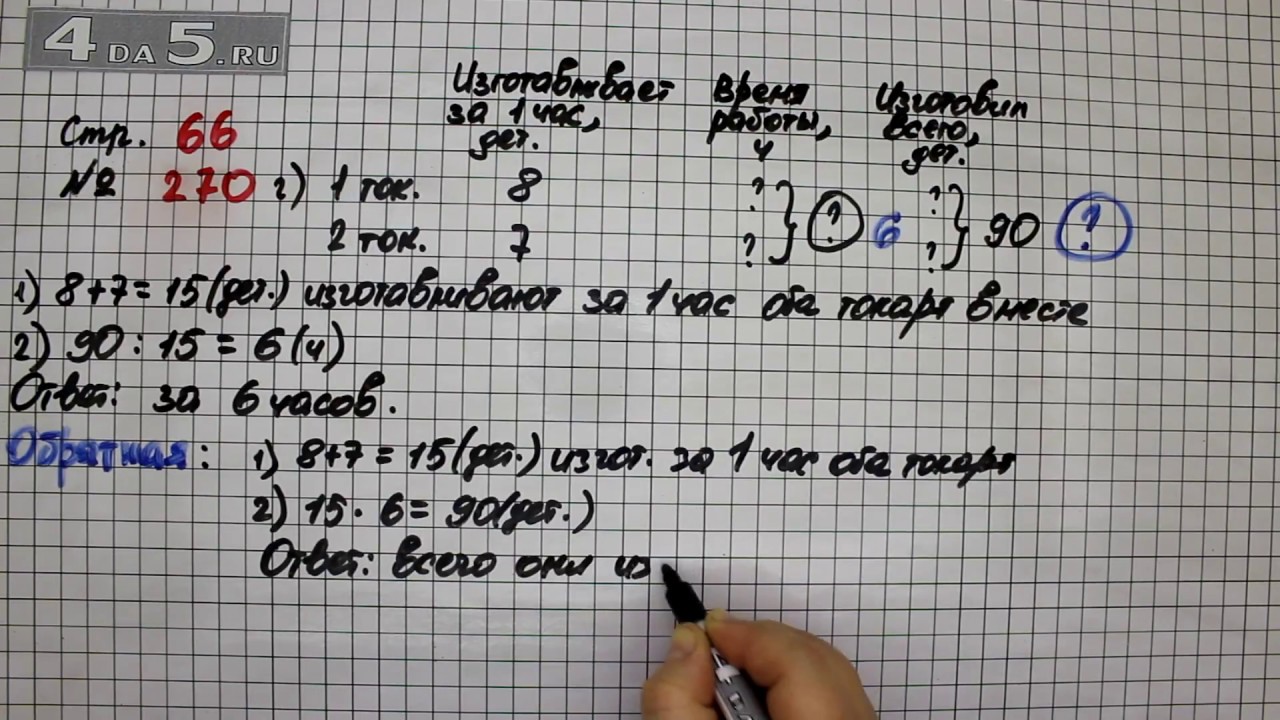 4 DA 5.RU
Изготавливает за 1 час, дет.
Время работы, ч
Изготовил всего, дет.
Стр. 66
№ 270 г) 1 ток. 8 ? } ? 6 ? } 90 ?
2 ток. 7 ? ?
1) 8+7=15(дет.) изготавливают за 1 час оба токаря вместе
2) 90:15=6(ч)
Ответ: за 6 часов.
Обратная: 1) 8+7=15(дет.) изгот. за 1 час оба токаря
2) 15·6=90(дет.)
Ответ: всего они из